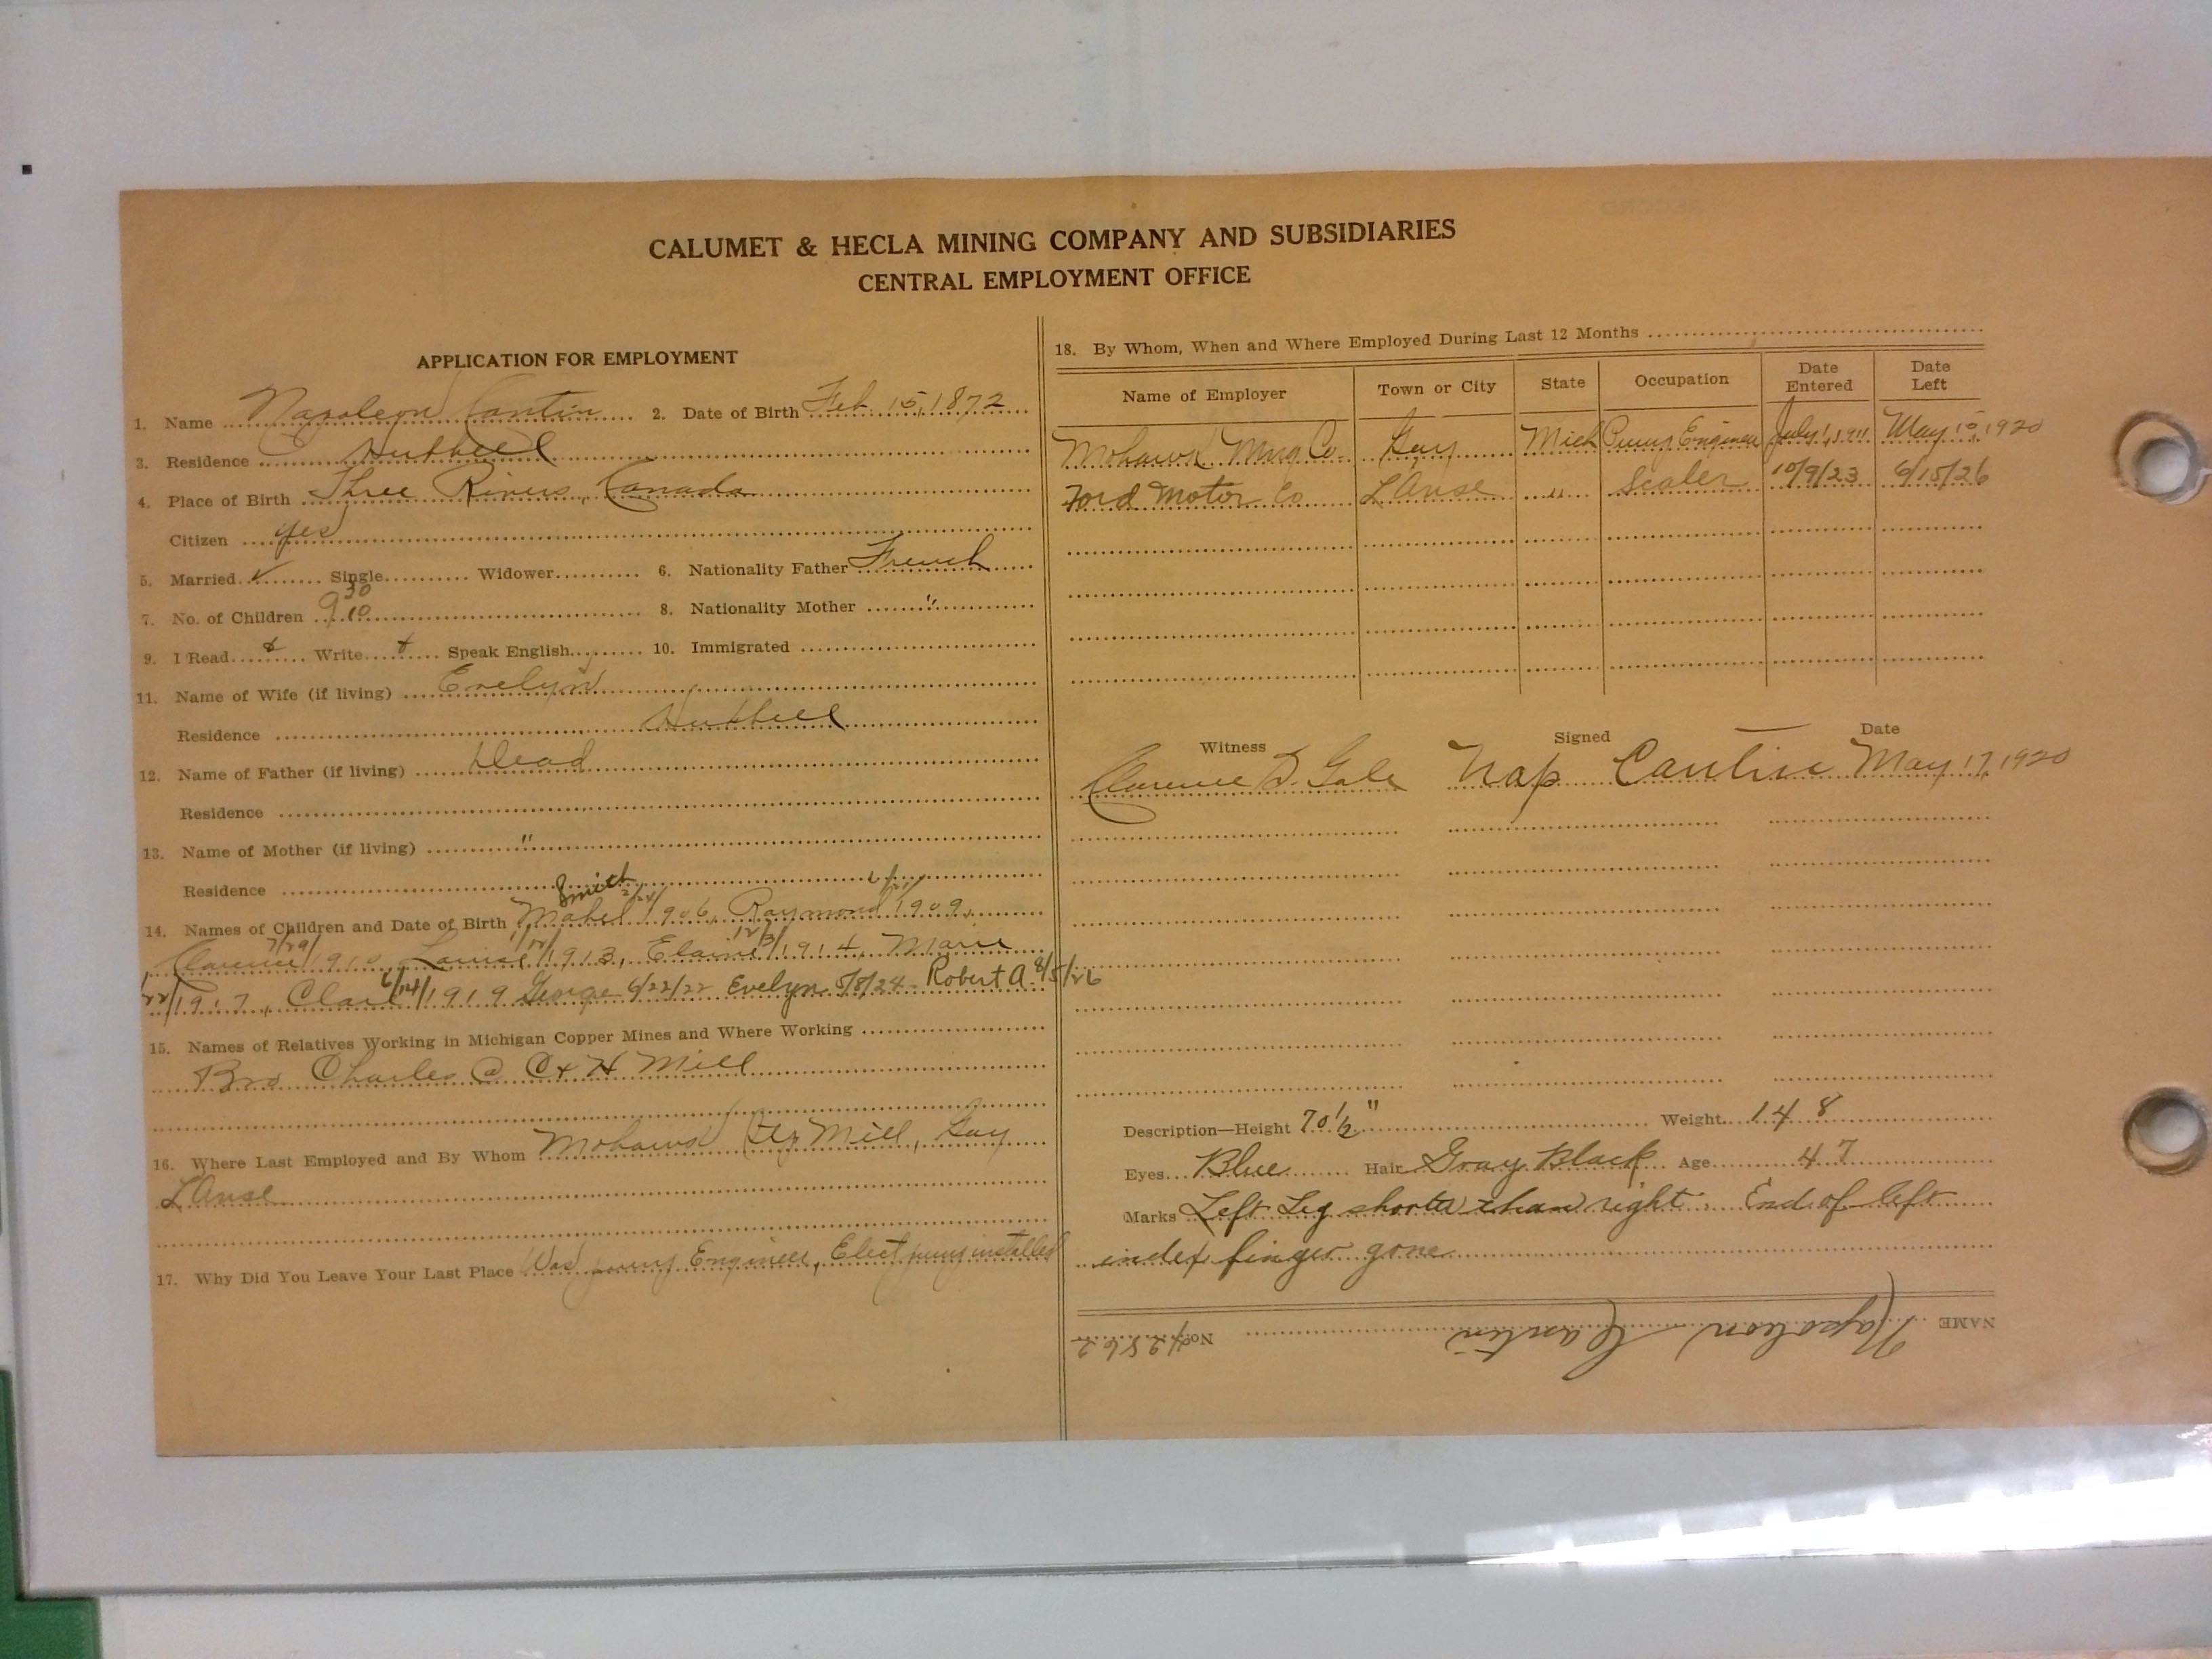 CALUMET & HECLA MINING COMPANY AND SUBSIDIARIES
CENTRAL EMPLOYMENT OFFICE
APPLICATION FOR EMPLOYMENT
1. Name Napoleon Cantin 2. Date of Birth Feb. 15, 1872
3. Residence Hubbell
4. Place of Birth Three Rivers, Canada
Citizen yes
5. Married ✓ Single Widower 6. Nationality Father French
7. No. of Children 9 10 8. Nationality Mother "
9. I Read Write Speak English 10. Immigrated
11. Name of Wife (if living) Evelyn
Residence Hubbell
12. Name of Father (if living) Dead
Residence
13. Name of Mother (if living) "
Residence
Smith
14. Names of Children and Date of Birth Mabel 1906, Raymond 1909,
Clarence 7/29/1910, Louise 1913, Elaine 12/3/1914, Marie
/22/1917, Clara 6/14/1919 George 6/22/22 Evelyn 5/8/24 - Robert A. 8/5/26
15. Names of Relatives Working in Michigan Copper Mines and Where Working
Bro Charles @ C & H Mill
16. Where Last Employed and By Whom Mohawk Mill, Gay
L'Anse
17. Why Did You Leave Your Last Place Was pump Engineer, Elect pump installed
18. By Whom, When and Where Employed During Last 12 Months
Name of Employer Town or City State Occupation Date Entered Date Left
Mohawk Mng Co. Gay Mich Pump Engineer July 1, 1911 May 15, 1920
Ford Motor Co L'Anse " Scaler 10/9/23 6/15/26
Witness Signed Date
Clarence D. Gale Nap Cantin May 17, 1920
Description—Height 70 1/2" Weight 148
Eyes Blue Hair Gray Black Age 47
Marks Left Leg shorter than right. End of left
index finger gone
NAME Napoleon Cantin No. 42862